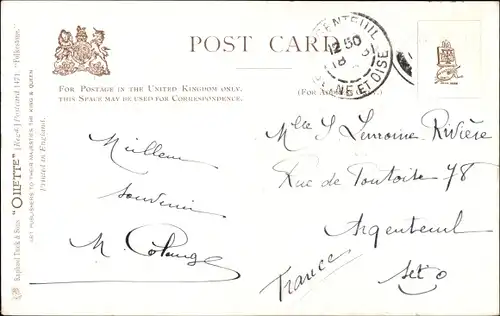 POST CARD
FOR POSTAGE IN THE UNITED KINGDOM ONLY,
THIS SPACE MAY BE USED FOR CORRESPONDENCE.
ENTEUIL
12 50
18
NE ET OISE
Raphael Tuck & Sons "OILETTE" [Regd.] Postcard 1471 "Folkestone."
ART PUBLISHERS TO THEIR MAJESTIES THE KING & QUEEN
Printed in England.
Meilleur
souvenir
Mlle S Lemoine Rivière
Rue de Pontoise 78
Argenteuil
S et O
France